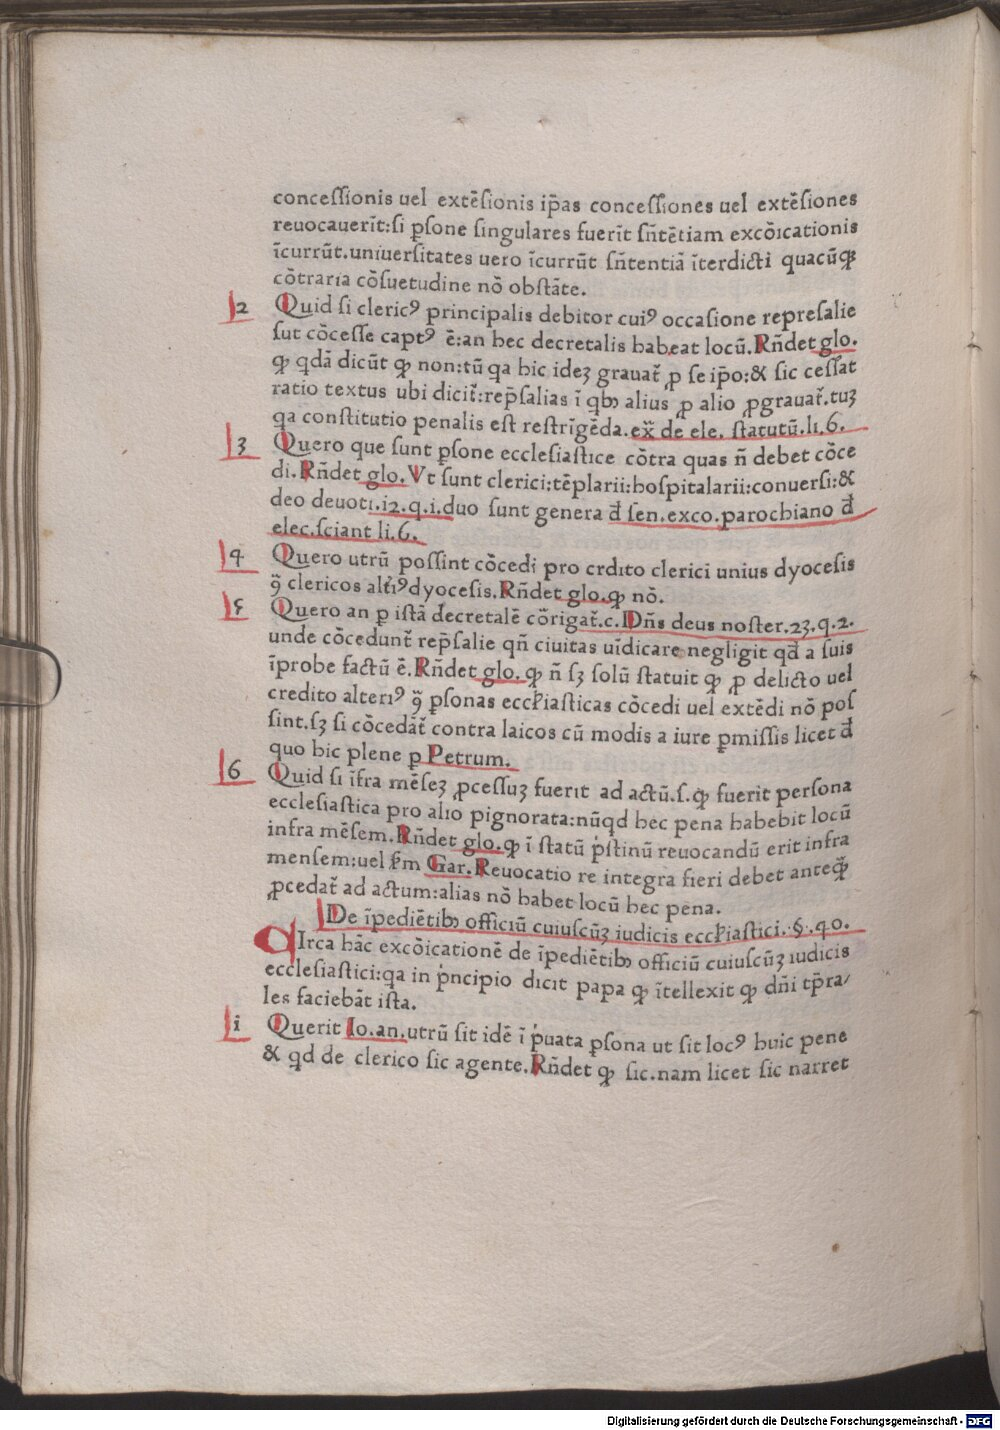 conceſſionis uel extēſionis ip̄as conceſſiones uel extēſiones
reuocauerīt:ſi ꝑſone ſingulares fuerīt ſn̄tētiam excōicationis
īcurrūt.uniuerſitates uero īcurrūt ſn̄tentiā īterdicti quacūꝙ
cōtraria cōſuetudine nō obſtāte.
2 Quid ſi clericꝰ principalis debitor cuiꝰ occaſione repreſalie
ſut cōceſſe captꝰ ē:an hec decretalis habeat locū.Rn̄det glo.
ꝙ qdā dicūt ꝙ non:tū qa hic ideꝫ grauat̄ ꝓ ſe ip̄o:& ſic ceſſat
ratio textus ubi dicit̄:rep̄ſalias ī qbꝫ alius ꝓ alio ꝓgrauat̄.tuꝫ
qa conſtitutio penalis eſt reſtrīgēda.ex̄ de ele. ſtatutū.li.6.
3 Quero que ſunt ꝑſone eccleſiaſtice cōtra quas n̄ debet cōce
di.Rn̄det glo.Vt ſunt clerici:tēplarii:hoſpitalarii:conuerſi:&
deo deuoti.i2.q.i.duo ſunt genera đ ſen.exco.parochiano đ
elec.ſciant li.6.
4 Quero utrū poſſint cōcedi pro crdito clerici unius dyoceſis
ꝯ̄ clericos alt̄iꝰ dyoceſis.Rn̄det glo.ꝙ nō.
5 Quero an ꝑ iſtā decretalē cōrigat̄.c.Dn̄s deus noſter.23.q.2.
unde cōcedunt̄ rep̄ſalie qn̄ ciuitas uīdicare negligit qđ a ſuis
īprobe factū ē.Rn̄det glo.ꝙ n̄ ſꝫ ſolū ſtatuit ꝙ ꝓ delicto uel
credito alteriꝰ ꝯ̄ ꝑſonas eccłiaſticas cōcedi uel extēdi nō poſ
ſint.ſꝫ ſi cōcedāt̄ contra laicos cū modis a iure ꝑmiſſis licet đ
quo hic plene ꝑ Petrum.
6 Quid ſi īfra mēſeꝫ ꝓceſſuꝫ fuerit ad actū.ſ.ꝙ fuerit perſona
eccleſiaſtica pro alio pignorata:nūqd hec pena habebit locū
infra mēſem.Rn̄det glo.ꝙ ī ſtatū p̍ſtinū reuocandū erit infra
menſem:uel ẜm Gar.Reuocatio re integra fieri debet anteꝙ̄
ꝓcedat̄ ad actum:alias nō habet locū hec pena.
De īpediētibꝫ officiū cuiuſcūꝫ iudicis eccłiaſtici.§.40.
CIrca hāc excōicationē de īpediētibꝫ officiū cuiuſcūꝫ iudicis
eccleſiaſtici:qa in p̍ncipio dicit papa ꝙ ītellexit ꝙ dn̄i tp̄ra/
les faciebāt iſta.
i Querit Io.an.utrū ſit idē ī p̍uata ꝑſona ut ſit locꝰ huic pene
& qd de clerico ſic agente.Rn̄det ꝙ ſic.nam licet ſic narret
Digitalisierung gefördert durch die Deutsche Forschungsgemeinschaft - DFG